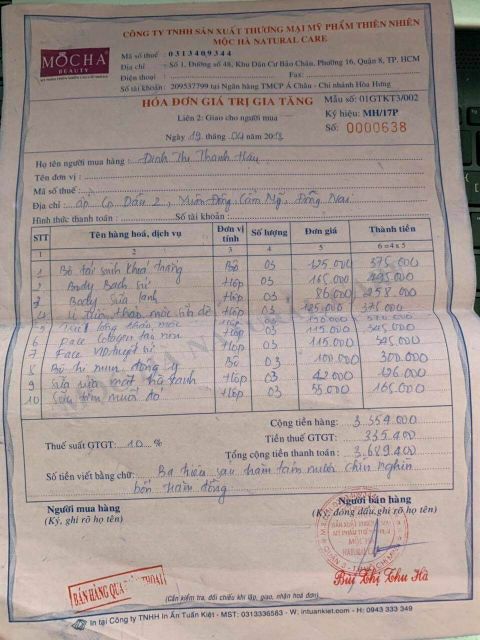 CÔNG TY TNHH SẢN XUẤT THƯƠNG MẠI MỸ PHẨM THIÊN NHIÊN
MỘC HÀ NATURAL CARE
MOCHA
BEAUTY
Mã số thuế : 0313409344
Địa chỉ : Số 1, Đường số 48, Khu Dân Cư Bảo Châu, Phường 16, Quận 8, TP. HCM
Điện thoại : Fax:
Số tài khoản : 209537799 tại Ngân hàng TMCP Á Châu - Chi nhánh Hòa Hưng
HÓA ĐƠN GIÁ TRỊ GIA TĂNG
Mẫu số: 01GTKT3/002
Liên 2: Giao cho người mua
Ký hiệu: MH/17P
Số: 0000638
Ngày 19 tháng 04 năm 2018
Họ tên người mua hàng : Đinh Thị Thanh Hậu
Tên đơn vị :
Mã số thuế :
Địa chỉ : ấp Cọ Dầu 2, Xuân Đông, Cẩm Mỹ, Đồng Nai
Hình thức thanh toán : Số tài khoản :
STT Tên hàng hoá, dịch vụ Đơn vị tính Số lượng Đơn giá Thành tiền
1 2 3 4 5 6=4x5
1 Bộ tái sinh khoá trắng Bộ 03 125.000 375.000
2 Body Bạch sứ Hộp 03 165.000 495.000
3 Body Sữa lạnh Hộp 03 86.000 258.000
4 thảo mộc sữa dê Hộp 03 125.000 375.000
5 thảo mộc Hộp 03 190.000 570.000
6 Face Collagen Hộp 03 115.000 345.000
7 Face Hộp 03 115.000 345.000
8 Bộ trị mụn đông y Bộ 03 100.000 300.000
9 Sữa rửa mặt Hộp 03 42.000 126.000
10 Sữa tắm muối đỏ Hộp 03 55.000 165.000
Cộng tiền hàng: 3.354.000
Thuế suất GTGT: 10 % Tiền thuế GTGT: 335.400
Tổng cộng tiền thanh toán: 3.689.400
Số tiền viết bằng chữ: Ba triệu sáu trăm tám mươi chín nghìn
bốn trăm đồng
Người mua hàng
(Ký, ghi rõ họ tên)
Người bán hàng
(Ký, đóng dấu, ghi rõ họ tên)
Bùi Thị Thu Hà
BÁN HÀNG QUA ĐIỆN THOẠI
(Cần kiểm tra, đối chiếu khi lập, giao, nhận hoá đơn)
In tại Công ty TNHH In Ấn Tuấn Kiệt - MST: 0313336563 - W: intuankiet.com - H: 0943 333 349